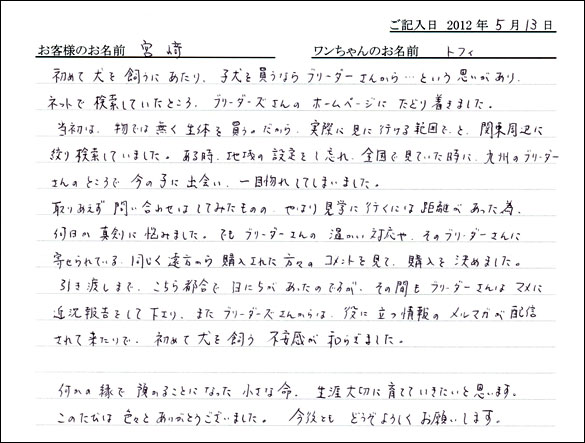 ご記入日 2012 年 5 月 13 日
お客様のお名前 宮崎 ワンちゃんのお名前 トフィ
初めて犬を飼うにあたり、子犬を買うならブリーダーさんから…という思いがあり、
ネットで検索していたところ、ブリーダーズさんのホームページにたどり着きました。
当初は、物では無く生体を買う。だから、実際に見に行ける範囲で、と、関東周辺に
絞り検索していました。ある時、地域の設定をし忘れ、全国で見ていた時に、九州のブリーダー
さんのところで今の子に出会い、一目惚れしてしまいました。
取りあえず問い合わせはしてみたものの、やはり見学に行くには距離があった為、
何日か真剣に悩みました。でもブリーダーさんの温かい対応や、そのブリーダーさんに
寄せられている、同じく遠方から購入された方々のコメントを見て、購入を決めました。
引き渡しまで、こちら都合で日にちがあったのですが、その間もブリーダーさんはマメに
近況報告をして下さり、またブリーダーズさんからは、役に立つ情報のメルマガが配信
されて来たりで、初めて犬を飼う不安感が和らぎました。
何かの縁で預かることになった小さな命、生涯大切に育てていきたいと思います。
このたびは色々とありがとうございました。今後ともどうぞよろしくお願いします。